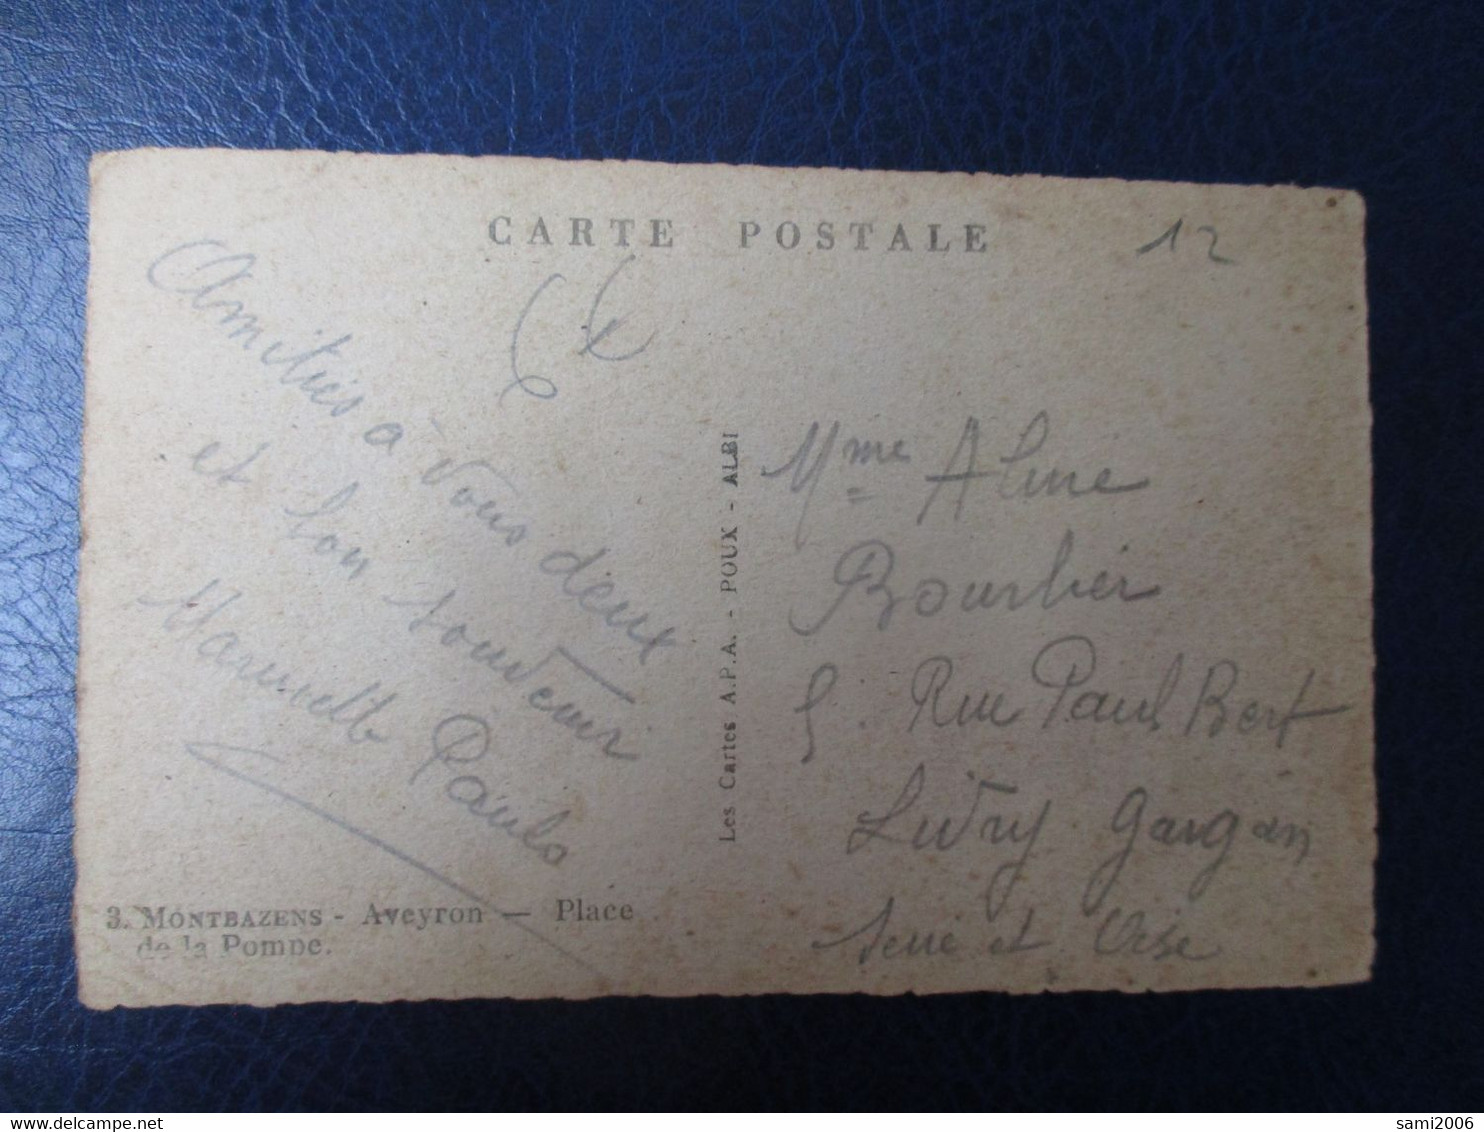 CARTE POSTALE
12
Amitiés à vous deux
et bon souvenir
Les Cartes A.P.A. - POUX - ALBI
Mme Aline
Bourlier
5. Rue Paul Bert
Livry Gargan
Seine et Oise
3. MONTBAZENS - Aveyron — Place
de la Pompe.
sami2006